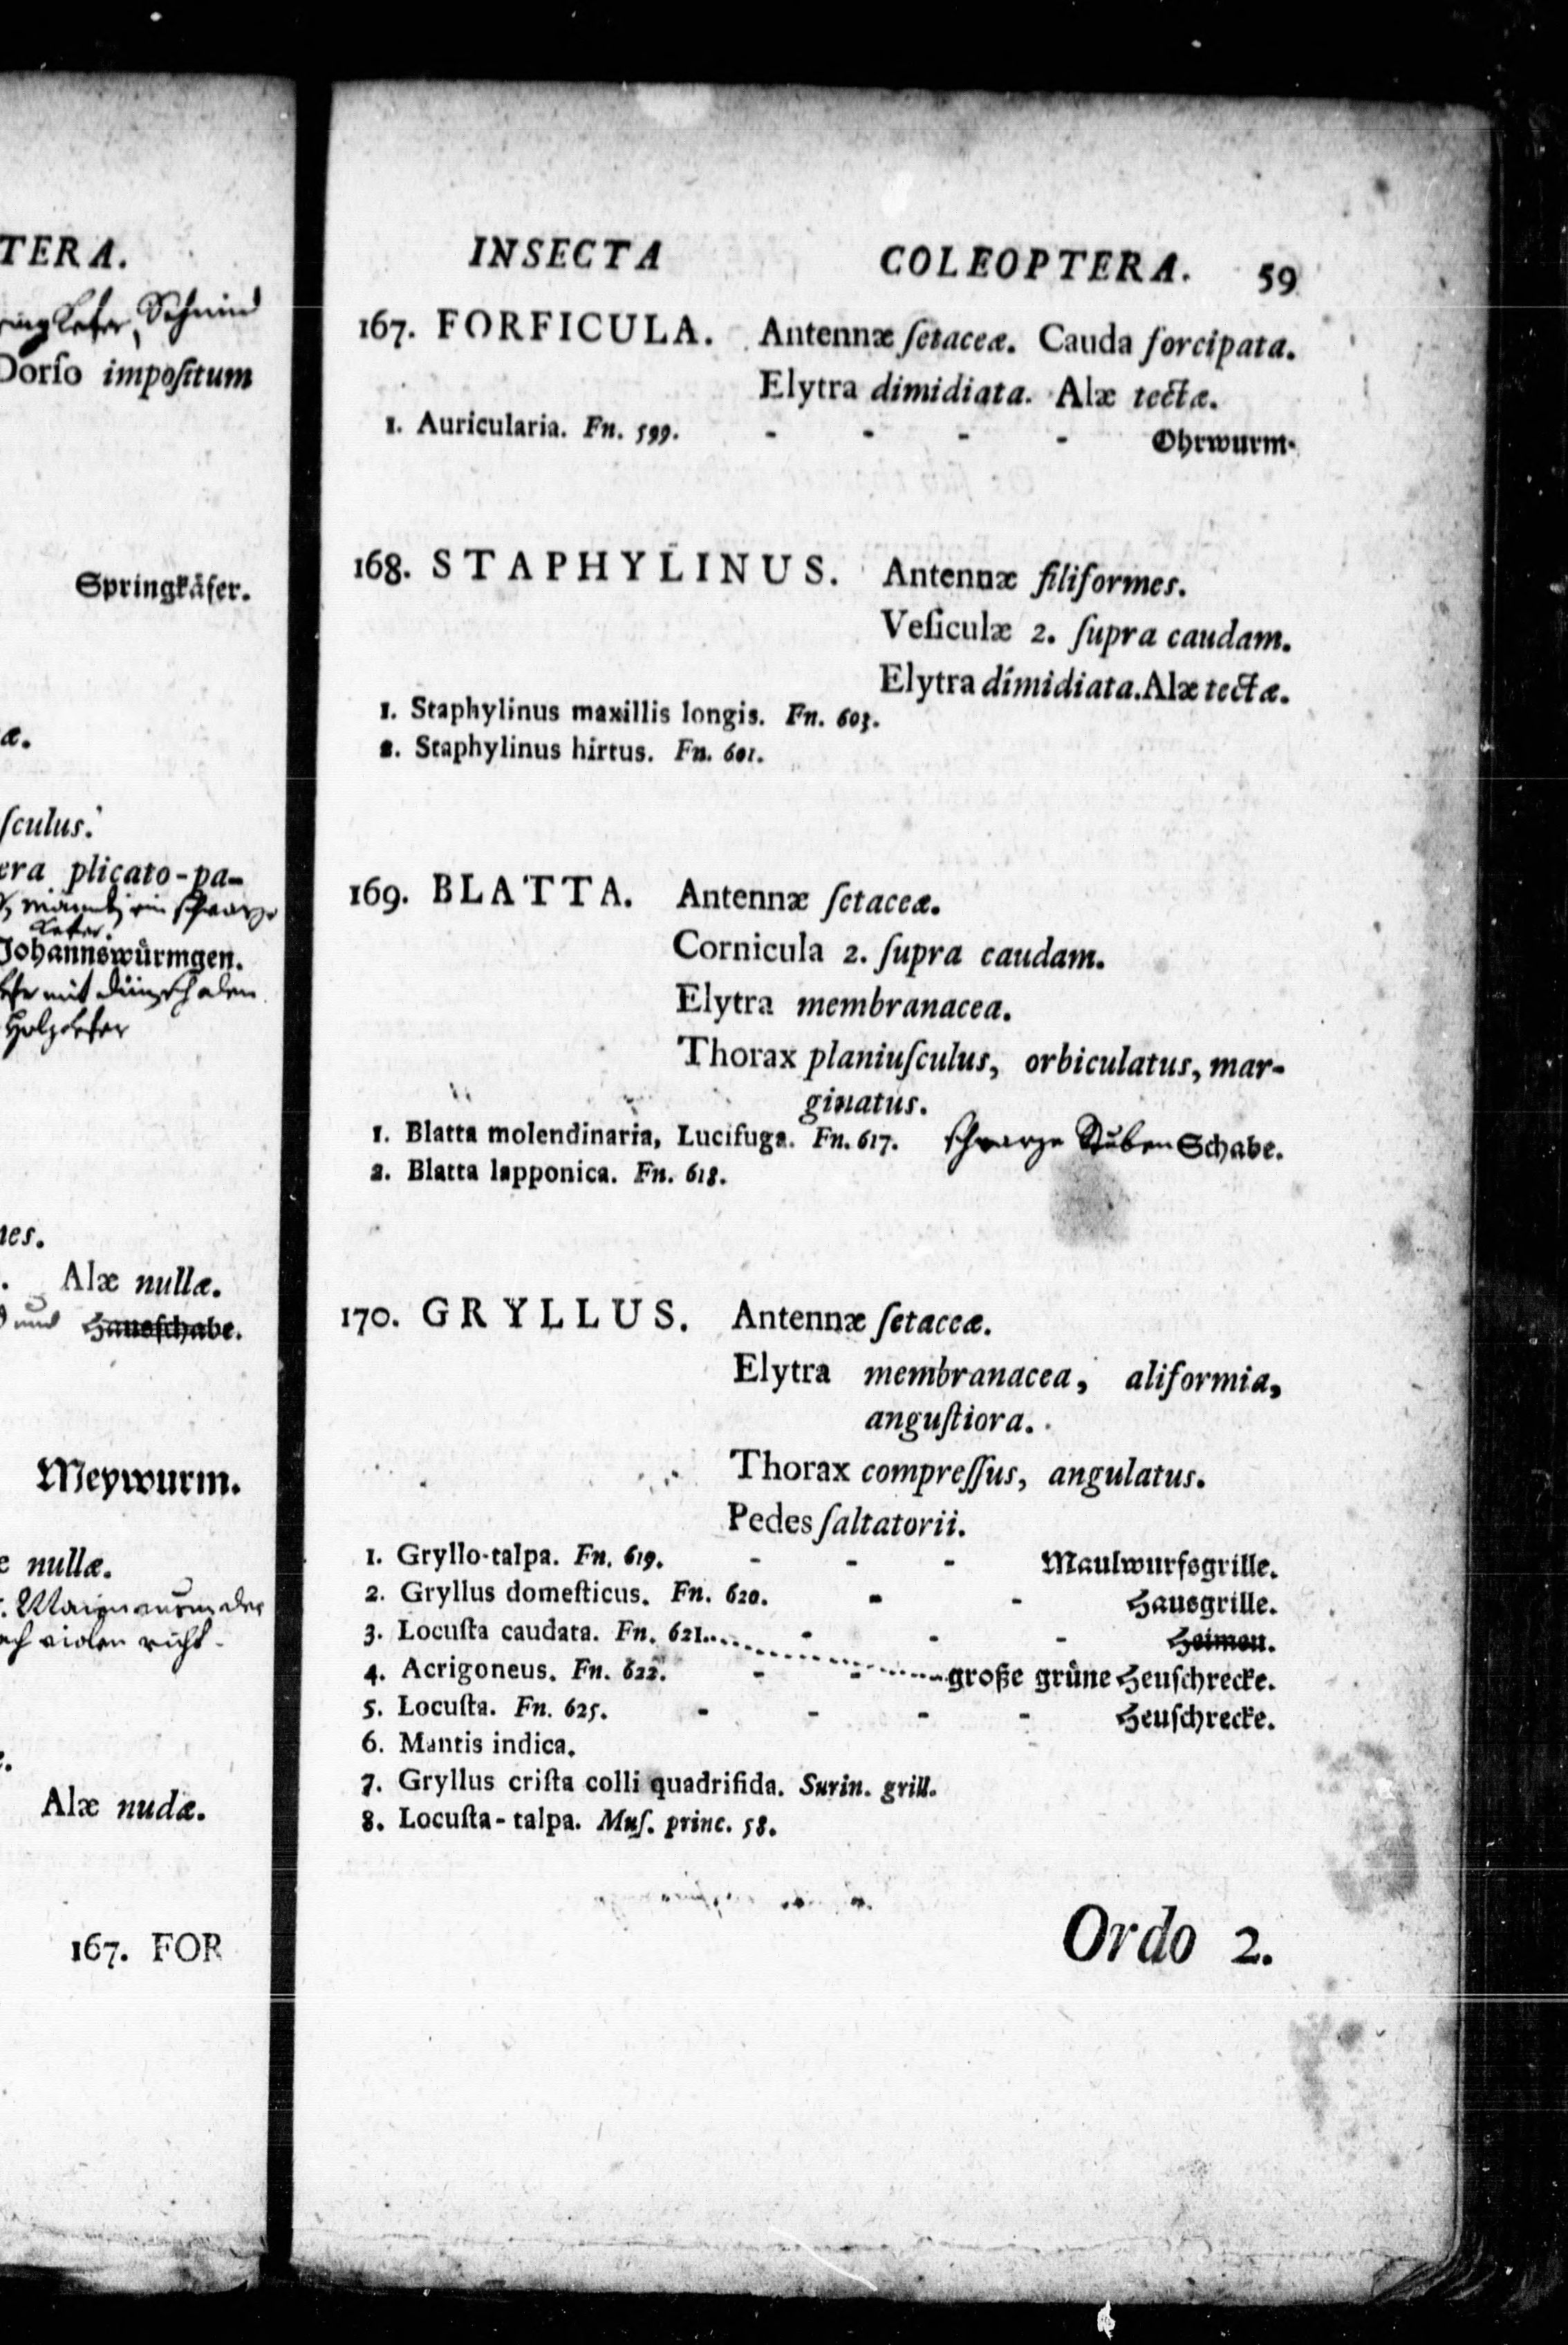 TERA.
Dorſo impoſitum
Springkåfer.
æ.
ſculus.
era plicato-pa-
Johannswürmgen.
Holzkefer
nes.
. Alæ nullæ.
und Hausſchabe.
Meywurm.
e nullæ.
Alæ nudæ.
167. FOR
INSECTA COLEOPTERA. 59
167. FORFICULA. Antennæ ſetaceæ. Cauda forcipata.
Elytra dimidiata. Alæ tectæ.
1. Auricularia. Fn. 599. - - - - Ohrwurm.
168. STAPHYLINUS. Antennæ filiformes.
Veſiculæ 2. ſupra caudam.
Elytra dimidiata. Alæ tectæ.
1. Staphylinus maxillis longis. Fn. 603.
2. Staphylinus hirtus. Fn. 601.
169. BLATTA. Antennæ ſetaceæ.
Cornicula 2. ſupra caudam.
Elytra membranacea.
Thorax planiuſculus, orbiculatus, mar-
ginatus.
1. Blatta molendinaria, Lucifuga. Fn. 617. schwarze Stuben Schabe.
2. Blatta lapponica. Fn. 618.
170. GRYLLUS. Antennæ ſetaceæ.
Elytra membranacea, aliformia,
anguſtiora.
Thorax compreſſus, angulatus.
Pedes ſaltatorii.
1. Gryllo-talpa. Fn. 619. - - - Maulwurfsgrille.
2. Gryllus domeſticus. Fn. 620. - - Hausgrille.
3. Locuſta caudata. Fn. 621. - - - Heimen.
4. Acrigoneus. Fn. 622. - - große grůne Heuſchrecke.
5. Locuſta. Fn. 625. - - - - Heuſchrecke.
6. Mantis indica.
7. Gryllus criſta colli quadrifida. Surin. grill.
8. Locuſta-talpa. Muſ. princ. 58.
Ordo 2.